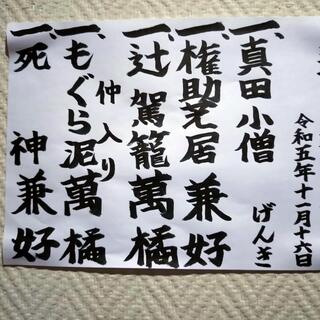 令和五年十一月十六日
一、真田小僧 げんき
一、権助芝居 兼好
一、辻駕籠 萬橘
仲入り
一、もぐら泥 萬橘
一、死神 兼好